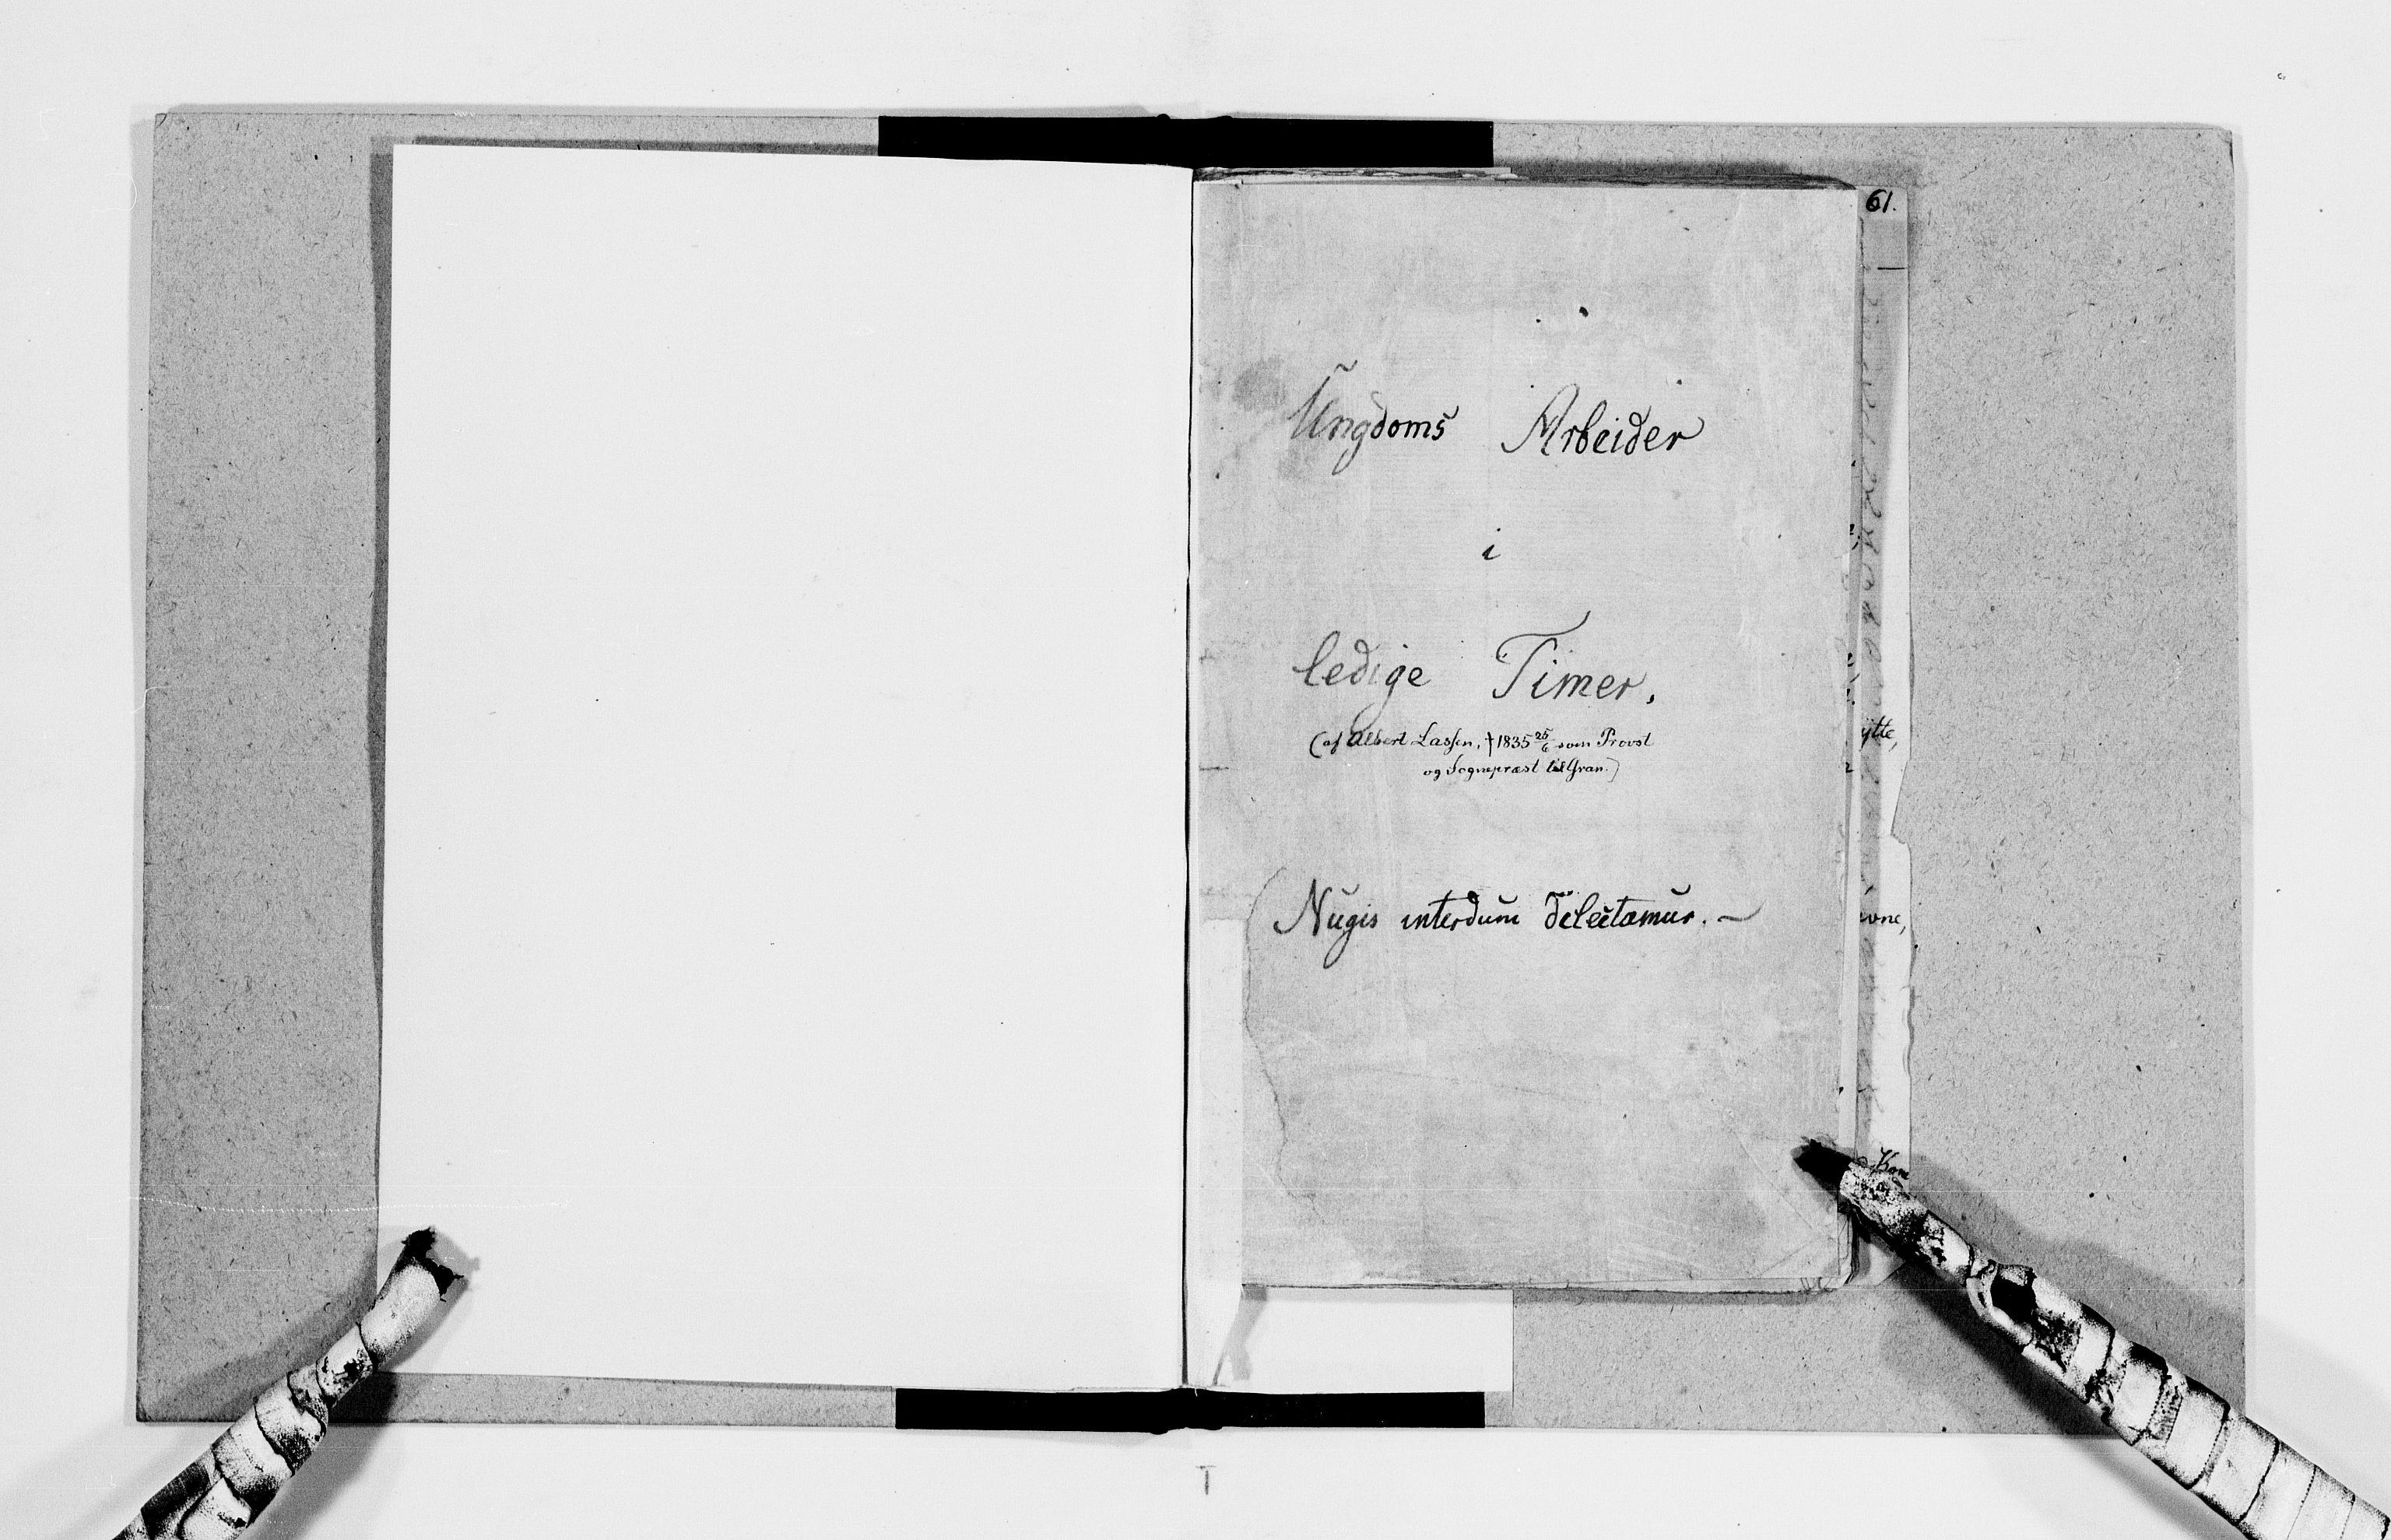 61.
Ungdoms Arbeider
i
ledige Timer.
(af Albert Lassen, † 1835 25/6 som Provst
og Sognepræst til Gran.)
Nugis interdum delectamur. —
ytte,
evne,